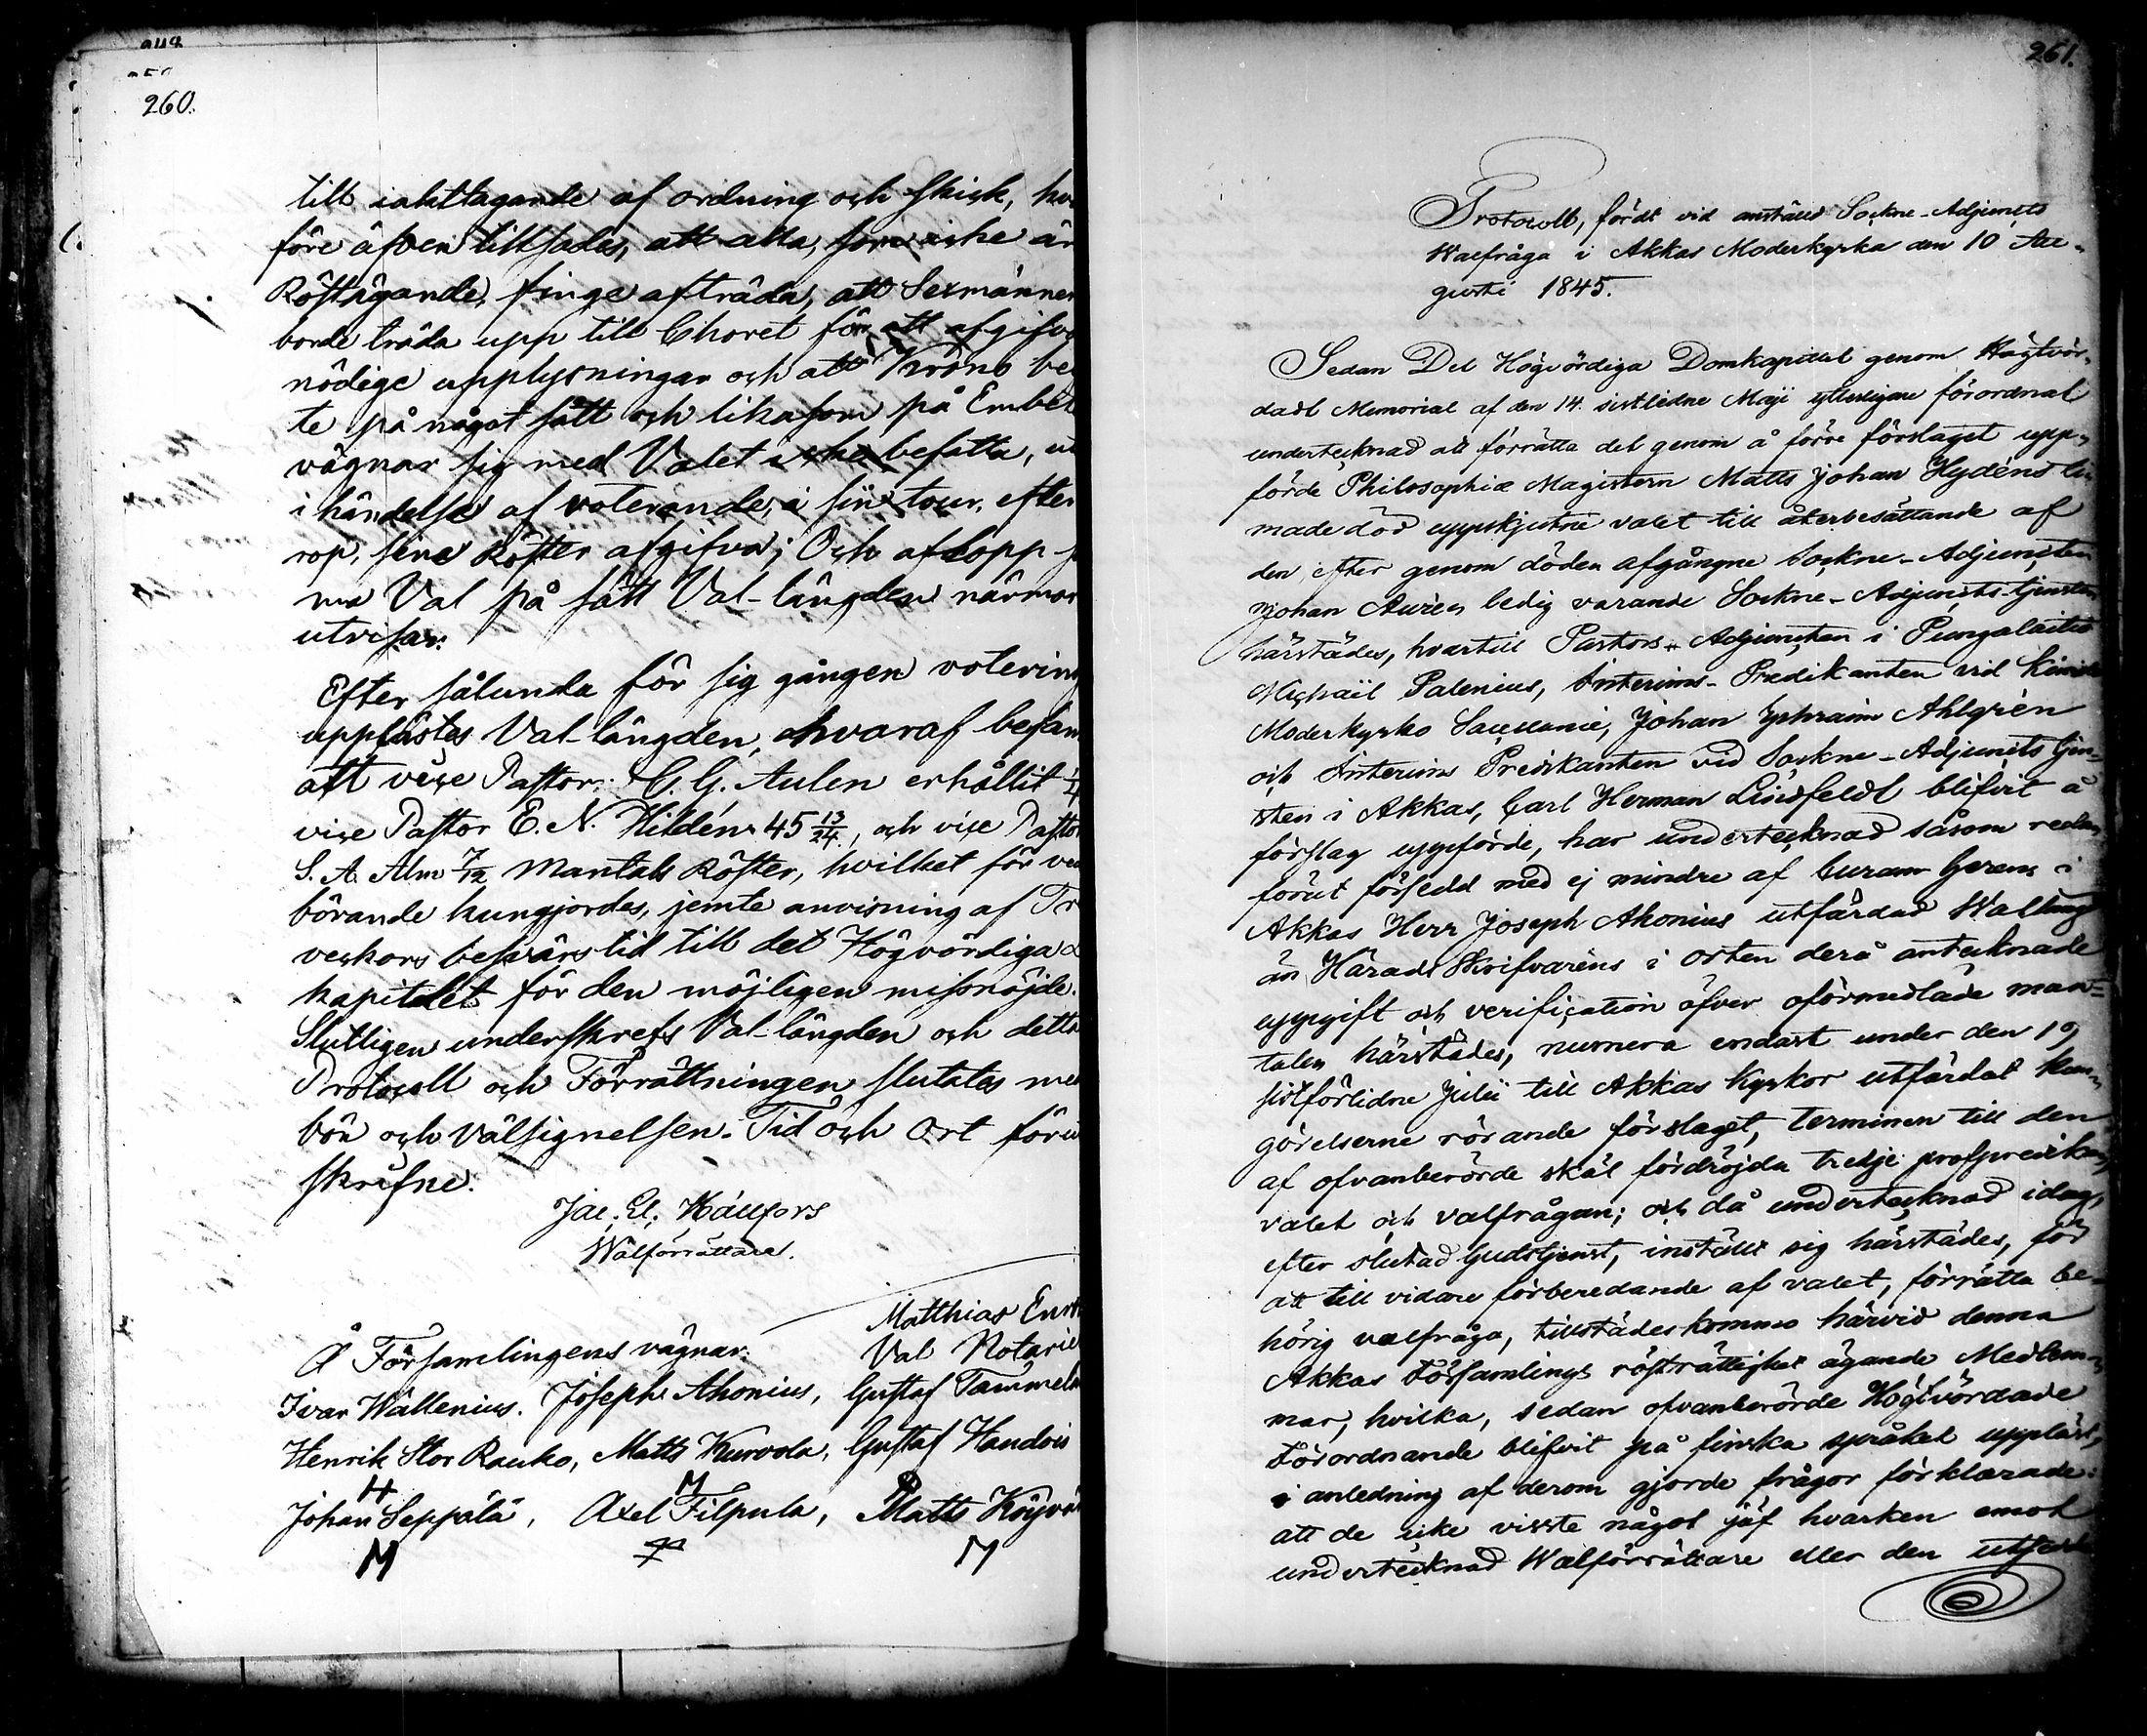 260.
till iakttagande af ordning och skick,
före äfven tillsades, att alla, som icke är
Röstägande, finge afträda, att Sexmännen
borde träda upp till Choret för att afgifva
nödige upplysningar och att Krono be
te på något sätt och likasom på Embet
vägnar sig med Valet icke befatta,
i händelse af voterande, i sin tour, efter
rop, sina Röster afgifva; Och aflopp
na Val på sätt Val-längden närmar
utvisar.
Efter sålunda för sig gången votering
upplästes Val-längden, hvaraf befan
att vice Pastor C. G. Aulen erhållit
vice Pastor E. N. Hildén 45 13/24, och vice Pastor
S. A. Alm 7/12 Mantals Röster, hvilket för ve
börande kungjordes, jemte anvisning af Tr
veckors besvärstid till det Högvördiga
kapitlet för den möjligen missnöjde.
Slutligen underskrefs Val-längden och detta
Protocoll och Förrättningen slutates me
bön och välsignelsen. Tid och Ort föru
skrifne.
Jac. El. Hällfors
Walförrättare.
Matthias
Å Församlingens vägnar: Val Notarie
Ivar Wallenius. Joseph Ahonius, Gustaf Tammel
Henrik Stor Rauko, Matts Kurvola, Gustaf Handois
H M
Johan Seppälä, Axel Filpula, Matts
M M
261.
Protocoll, fördt vid anstäld Sockne-Adjuncts
Walfråga i Akkas Moderkyrka den 10 Au-
gusti 1845.
Sedan Det Högvördiga Domkapitlet genom Högtvör-
dadt Memorial af den 14 sistledne Maji ytterligare förordnat
undertecknad att förrätta det genom å förre förslaget upp-
förde Philosophiæ Magistern Matts Johan Hydéns ti-
made död uppskjutne valet till återbesättande af
den efter genom döden afgångne Sockne-Adjuncten
Johan Aurén ledig varande Sockne-Adjuncts-tjensten
härstädes, hvartill Pastors-Adjuncten i Pungalaitio
Michaël Palenius, Interims-Predikanten vid
Moderkyrko Sacellanie, Johan Ephraim Ahlgrén
och Interims Predikanten vid Sockne-Adjuncts tjen-
sten i Akkas, Carl Herman Lindfeldt blifvit å
förslag uppförde, har undertecknad såsom redan
förut försedd med ej mindre af Curam Gerens i
Akkas Herr Joseph Ahonius utfärdad Wallängd
än Härads Skrifvarens i orten derå antecknade
uppgift och verification öfver oförmedlade man-
talen härstädes, numera endast under den 19
sistförlidne Julii till Akkas Kyrkor utfärdat kun-
görelserne rörande förslaget, terminen till den
af ofvanberörde skäl fördröjda tredje profpredikan,
valet och valfrågan; och då undertecknad idag,
efter slutad Gudstjenst, inställt sig härstädes, för
att till vidare förberedande af valet, förrätta be-
hörig valfråga, tillstädeskommo härvid denna
Akkas Församlings rösträttighet ägande Medlem-
mar, hvilka, sedan ofvanberörde Högtvördade
Förordnande blifvit på finska språket uppläst,
i anledning af derom gjorde frågor förklarade:
att de icke visste något jäf hvarken emot
undertecknad Walförrättare eller den